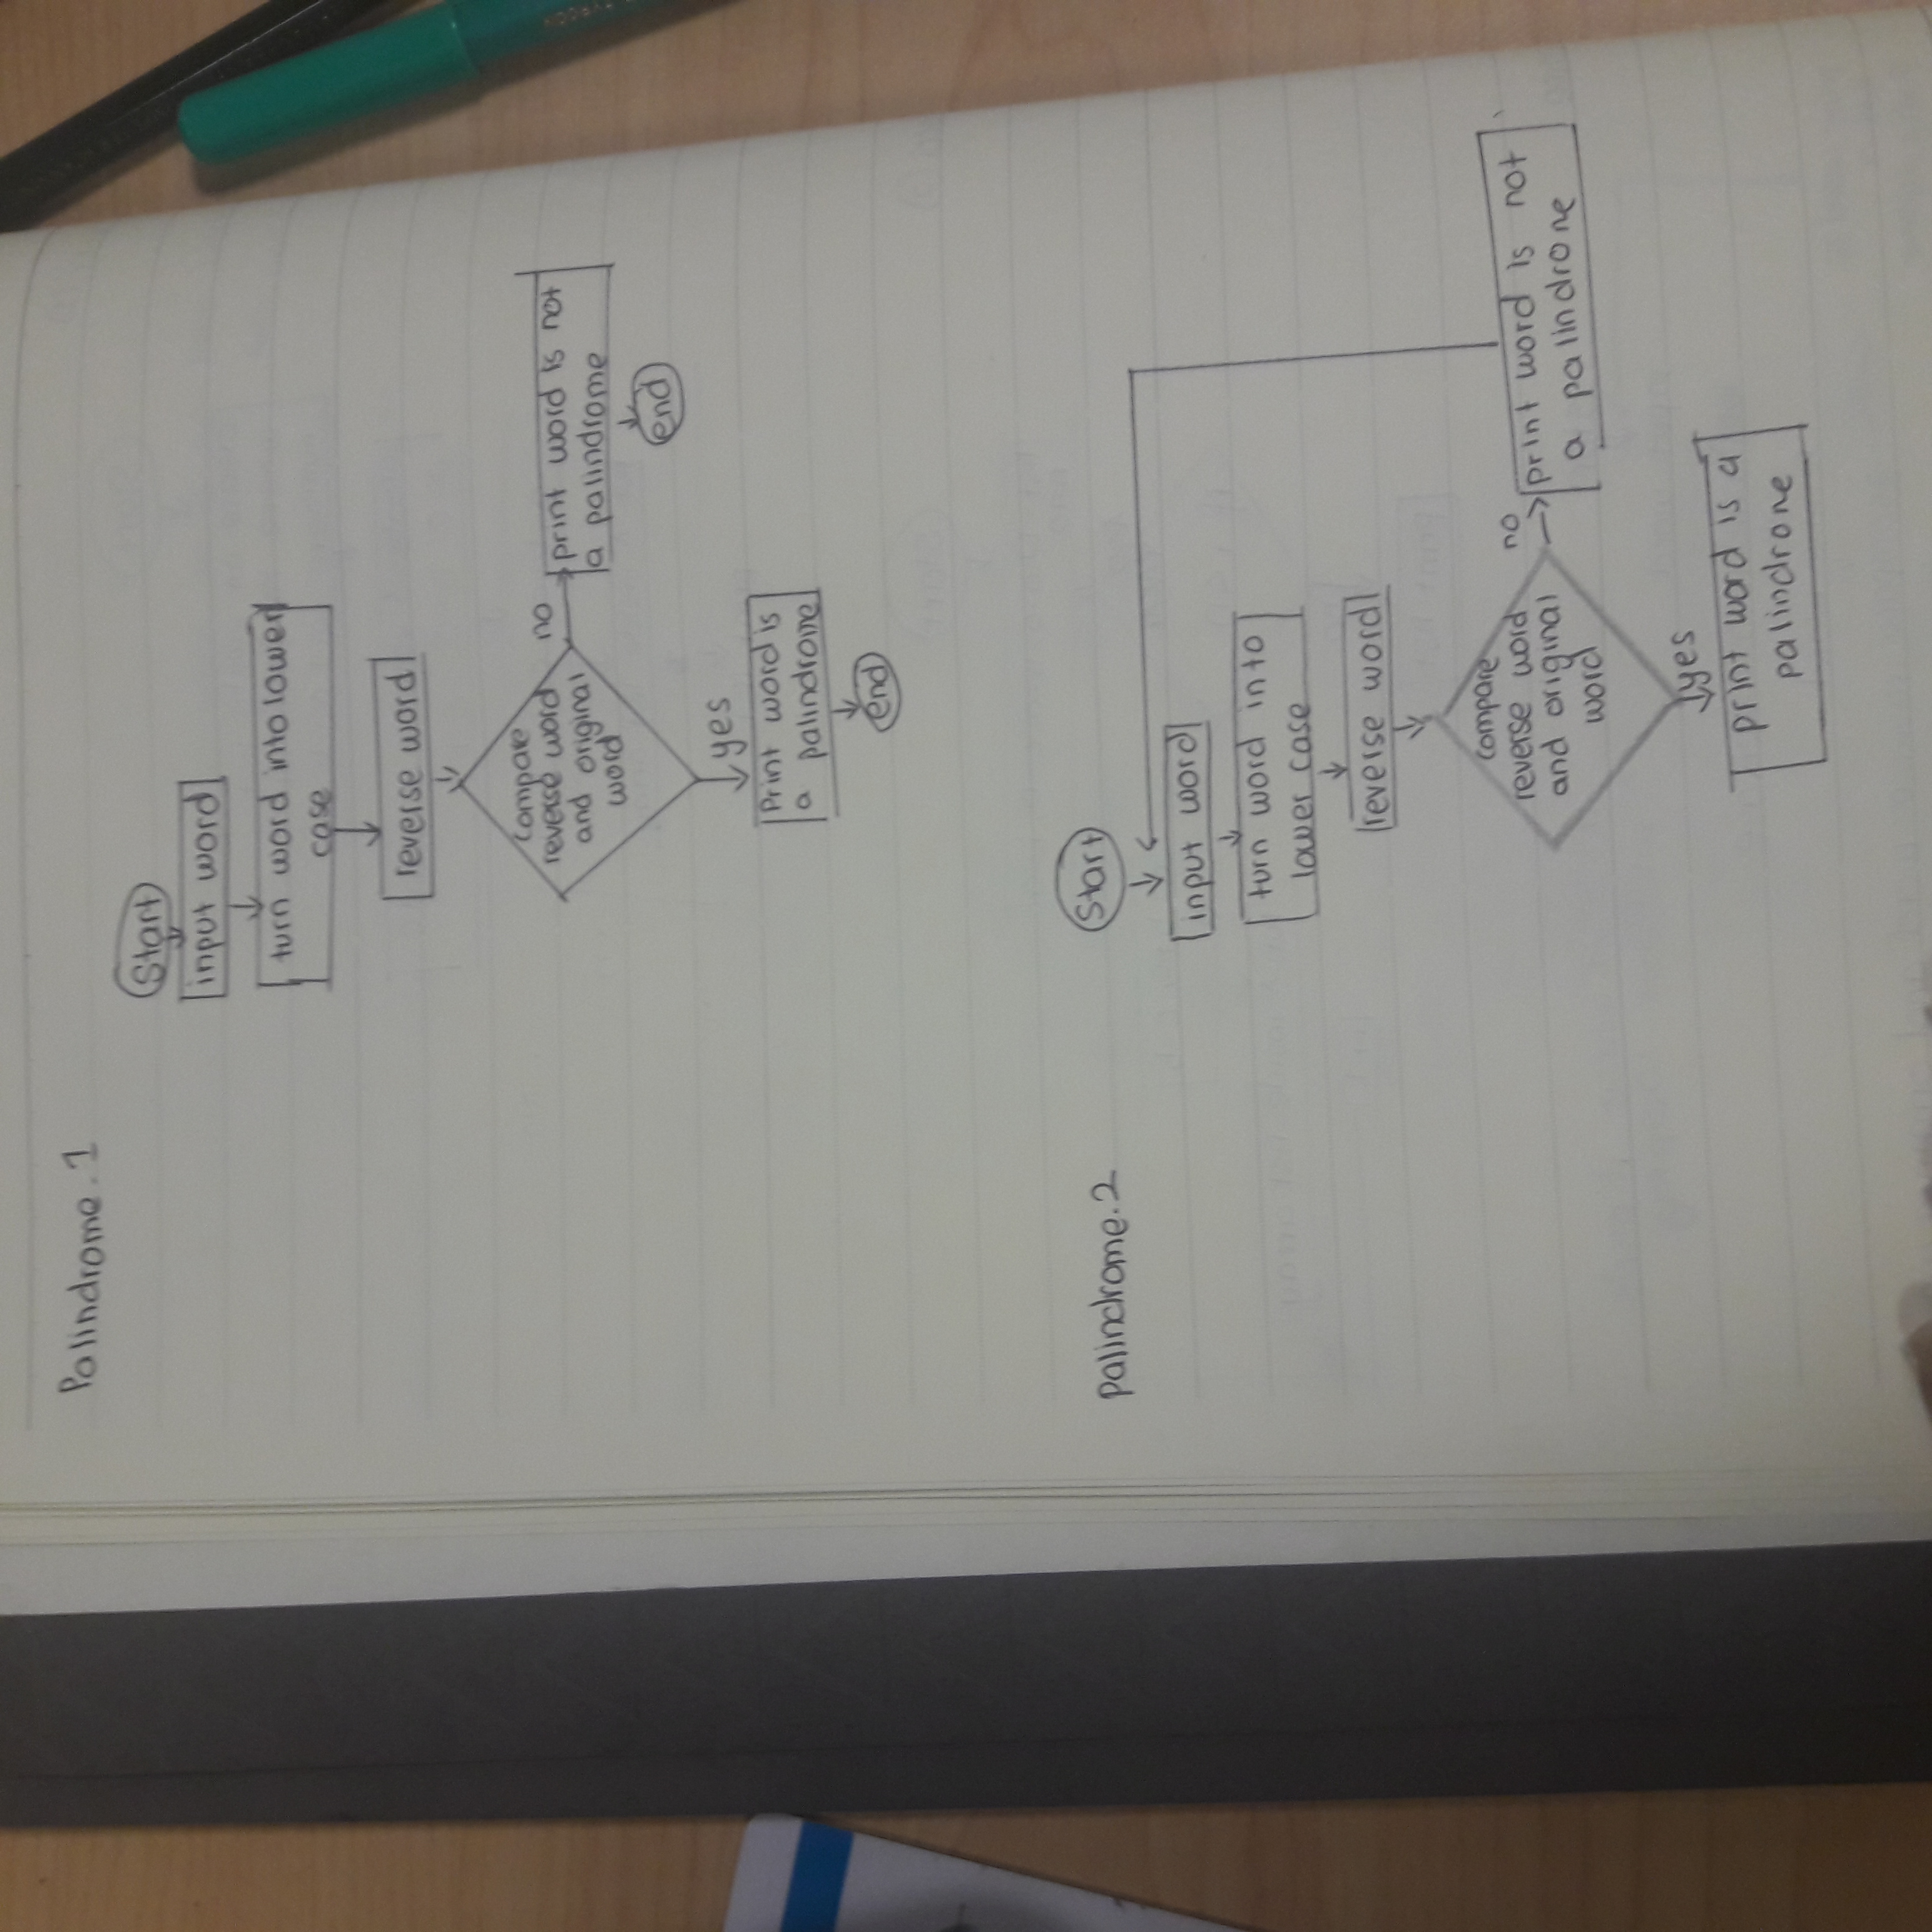 Palindrome.1
Start
input word
turn word into lower
case
reverse word
compare
reverse word
and original
word
no
print word is not
a palindrome
end
yes
Print word is
a palindrome
end
Palindrome.2
Start
input word
turn word into
lower case
reverse word
compare
reverse word
and original
word
no
print word is not
a palindrone
yes
print word is a
palindrone